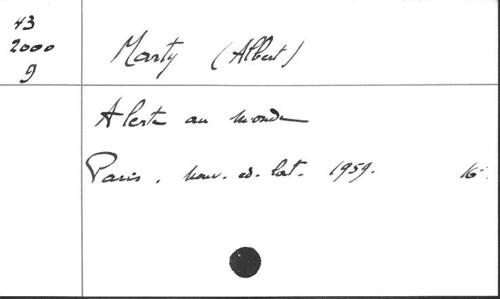 43
2000
9
Marty (Albert)
Alerte au monde
Paris. nouv. ed. lat. 1959. 16°